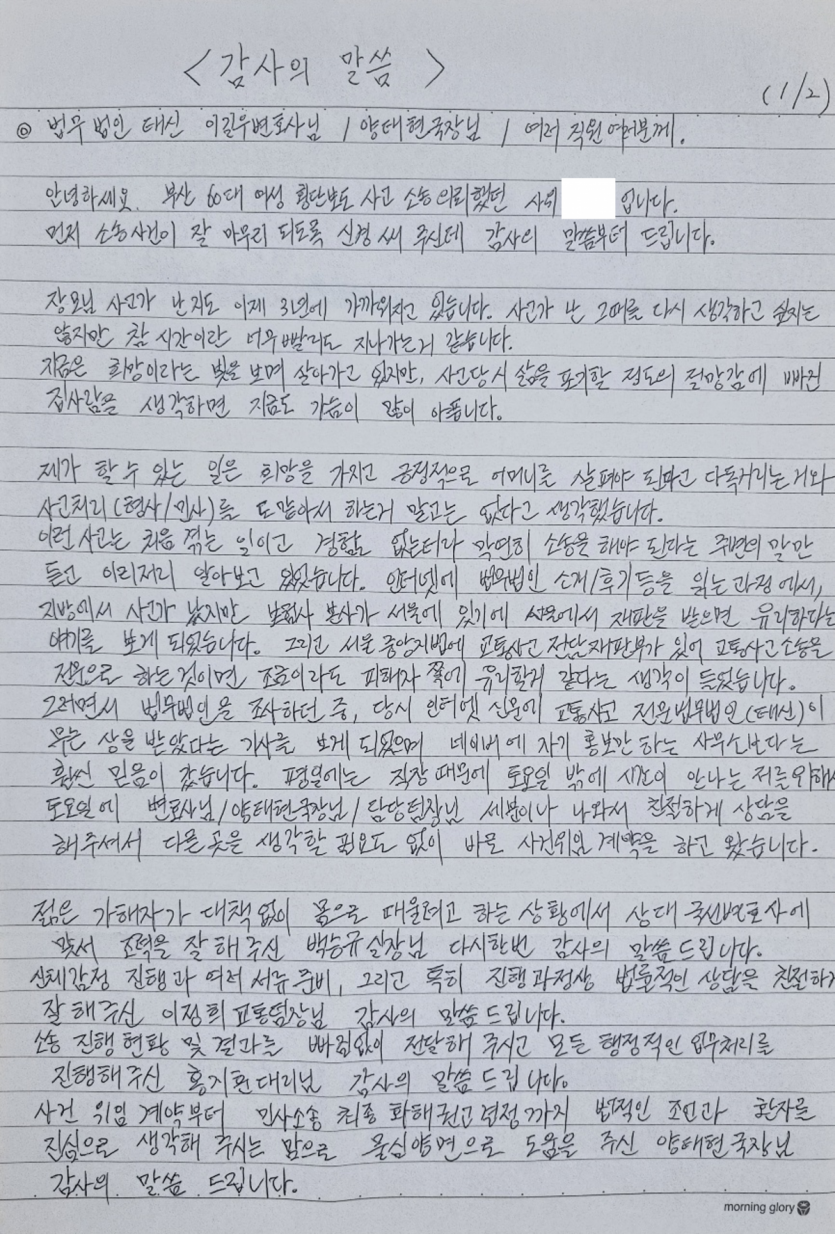 <감사의 말씀>
(1/2)
◎ 법무법인 태신 이길우변호사님 / 양태현국장님 / 여러 직원 여러분께.
안녕하세요. 부산 60대 여성 횡단보도 사고 소송 의뢰했던 사위 입니다.
먼저 소송사건이 잘 마무리 되도록 신경 써 주신데 감사의 말씀부터 드립니다.
장모님 사고가 난지도 이제 3년에 가까워지고 있습니다. 사고가 난 그때를 다시 생각하고 싶지는
않지만 참 시간이란 너무 빨리도 지나가는거 같습니다.
지금은 희망이라는 빛을 보며 살아가고 있지만, 사고당시 삶을 포기할 정도의 절망감에 빠진
집사람을 생각하면 지금도 가슴이 많이 아픕니다.
제가 할 수 있는 일은 희망을 가지고 긍정적으로 어머니를 살펴야 된다고 다독거리는거와
사고처리(형사/민사)를 도맡아서 하는거 말고는 없다고 생각했습니다.
이런 사고는 처음 겪는 일이고 경험도 없는터라 막연히 소송을 해야 된다는 주변의 말만
듣고 이리저리 알아보고 있었습니다. 인터넷에 법무법인 소개/후기등을 읽는과정에서,
지방에서 사고가 났지만 보험사 본사가 서울에 있기에 서울에서 재판을 받으면 유리하다는
얘기를 보게 되었습니다. 그리고 서울 중앙지법에 교통사고 전담재판부가 있어 교통사고소송을
전문으로 하는것이면 조금이라도 피해자 쪽에 유리할거 같다는 생각이 들었습니다.
그러면서 법무법인을 조사하던 중, 당시 인터넷 신문에 교통사고 전문법무법인(태신)이
무슨 상을 받았다는 기사를 보게 되었으며 네이버에 자기 홍보만 하는 사무소보다는
훨씬 믿음이 갔습니다. 평일에는 직장 때문에 토요일 밖에 시간이 안나는 저를 위해서
토요일에 변호사님/양태현국장님/담당팀장님 세분이나 나와서 친절하게 상담을
해주셔서 다른 곳을 생각할 필요도 없이 바로 사건위임 계약을 하고 왔습니다.
젊은 가해자가 대책없이 몸으로 때울려고 하는 상황에서 상대 국선변호사에
맞서 조력을 잘 해 주신 백승규실장님 다시한번 감사의 말씀드립니다.
신체감정 진행과 여러 서류 준비, 그리고 특히 진행과정상 법률적인 상담을 친절하게
잘 해 주신 이정희교통팀장님 감사의 말씀 드립니다.
소송 진행 현황 및 결과를 빠짐없이 전달해 주시고 모든 행정적인 업무처리를
진행해주신 홍지환대리님 감사의 말씀 드립니다.
사건 위임 계약부터 민사소송 최종 화해권고결정까지 법적인 조언과 환자를
진심으로 생각해 주시는 맘으로 물심양면으로 도움을 주신 양태현국장님
감사의 말씀 드립니다.
morning glory